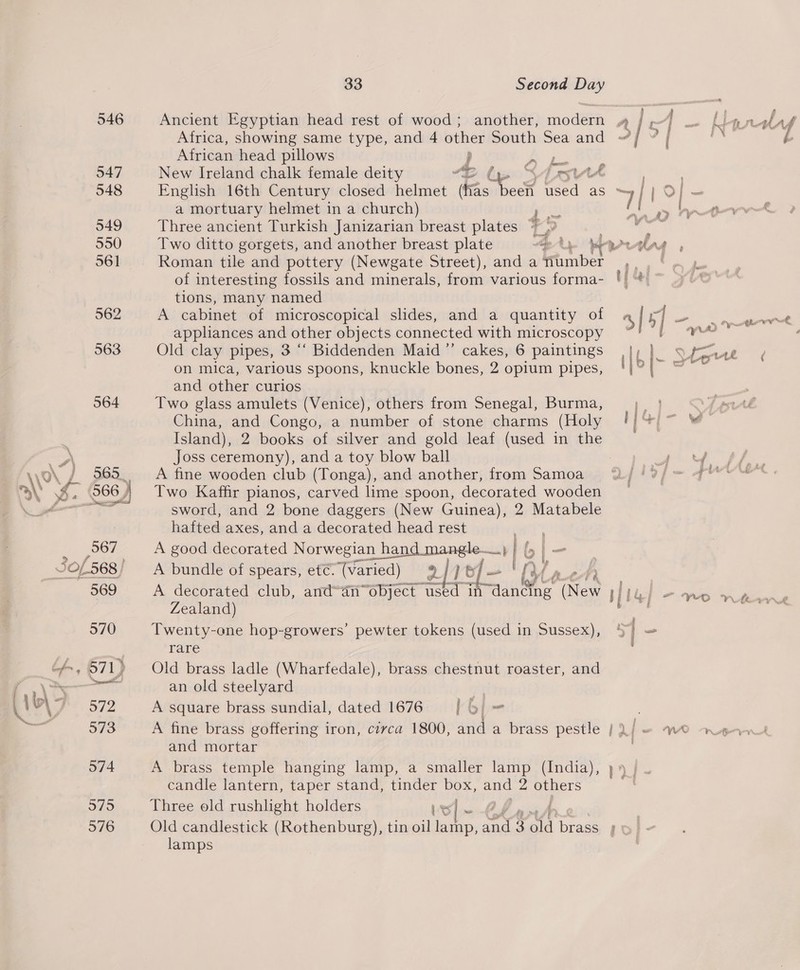 33 Second Day
546 Ancient Egyptian head rest of wood; another, modern
Africa, showing same type, and 4 other South Sea and
African head pillows
547 New Ireland chalk female deity
548 English 16th Century closed helmet (has been used as
a mortuary helmet in a church)
549 Three ancient Turkish Janizarian breast plates
550 Two ditto gorgets, and another breast plate
561 Roman tile and pottery (Newgate Street), and a number
of interesting fossils and minerals, from various forma-
tions, many named
562 A cabinet of microscopical slides, and a quantity of
appliances and other objects connected with microscopy
563 Old clay pipes, 3 “ Biddenden Maid ” cakes, 6 paintings
on mica, various spoons, knuckle bones, 2 opium pipes,
and other curios
564 Two glass amulets (Venice), others from Senegal, Burma,
China, and Congo, a number of stone charms (Holy
Island), 2 books of silver and gold leaf (used in the
Joss ceremony), and a toy blow ball
565 A fine wooden club (Tonga), and another, from Samoa
566 Two Kaffir pianos, carved lime spoon, decorated wooden
sword, and 2 bone daggers (New Guinea), 2 Matabele
hafted axes, and a decorated head rest
567 A good decorated Norwegian hand mangle
568 A bundle of spears, etc. (varied)
569 A decorated club, and an object used in dancing (New
Zealand)
570 Twenty-one hop-growers’ pewter tokens (used in Sussex),
rare
571 Old brass ladle (Wharfedale), brass chestnut roaster, and
an old steelyard
572 A square brass sundial, dated 1676
573 A fine brass goffering iron, circa 1800, and a brass pestle
and mortar
574 A brass temple hanging lamp, a smaller lamp (India),
candle lantern, taper stand, tinder box, and 2 others
575 Three old rushlight holders
576 Old candlestick (Rothenburg), tin oil lamp, and 3 old brass
lamps